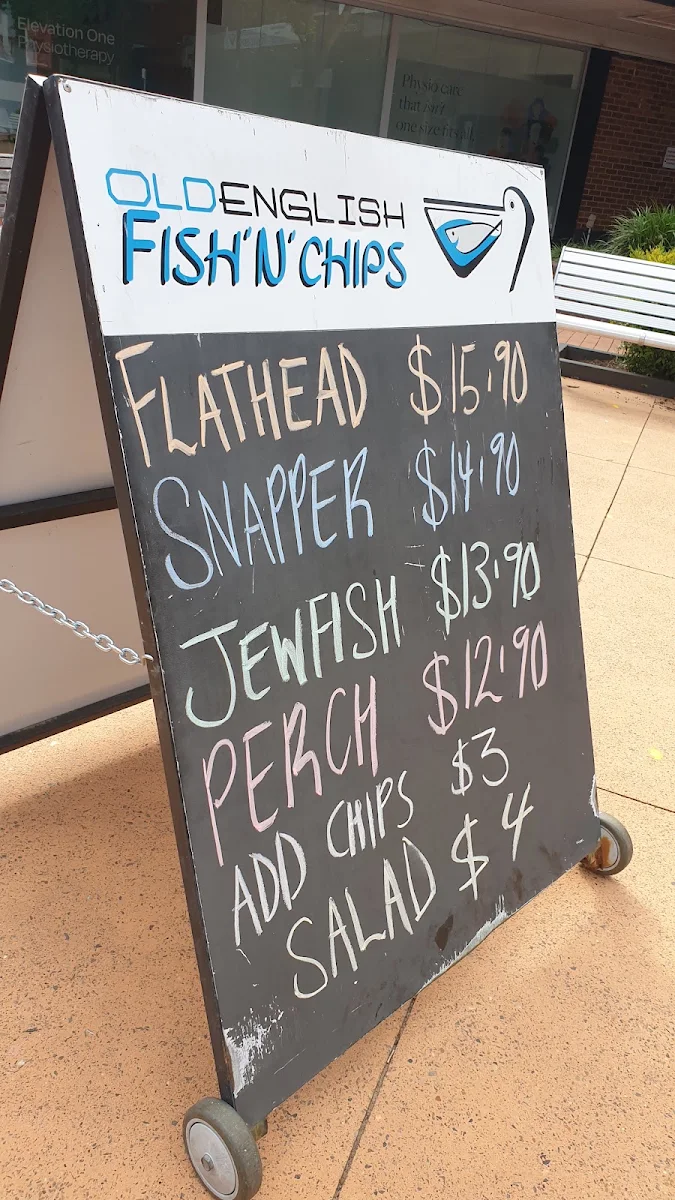 Elevation One
Physiotherapy
Physio care
that isn't
one size fits all.
OLDENGLISH
FISH'N'CHIPS
FLATHEAD $15.90
SNAPPER $14.90
JEWFISH $13.90
PERCH $12.90
ADD CHIPS $3
SALAD $4